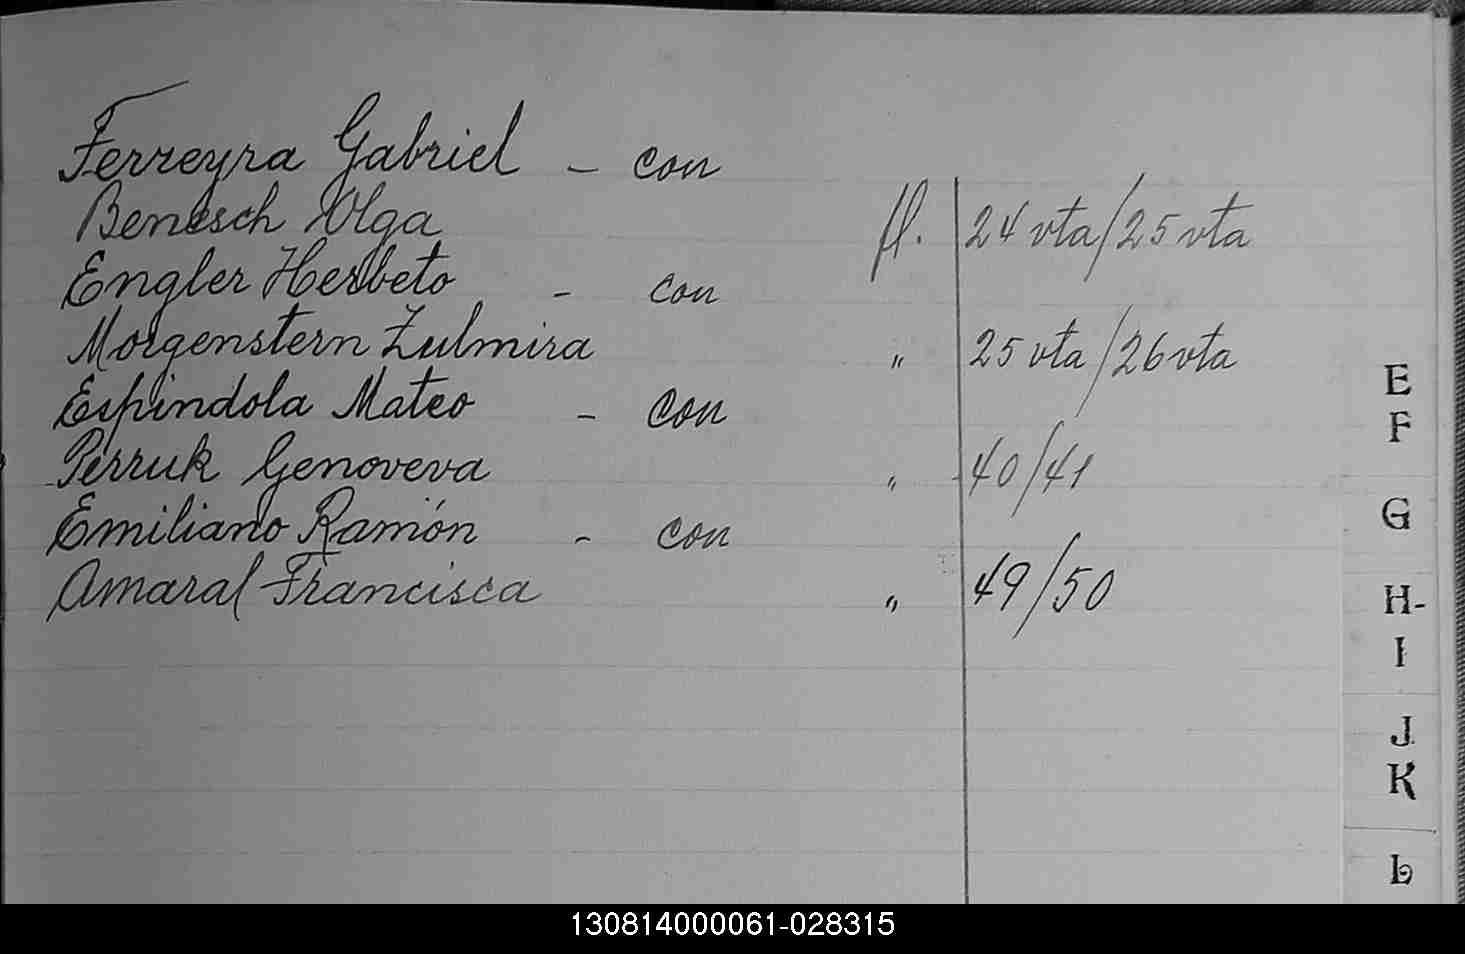 Ferreyra Gabriel - con
Benesch Olga fl. 24 vta/25 vta
Engler Herbeto - con
Morgenstern Zulmira " 25 vta/26 vta
Espindola Mateo - con
Perruk Genoveva " 40/41
Emiliano Ramón - con
Amaral Francisca " 49/50
E
F
G
H-
I
J
K
L
130814000061-028315